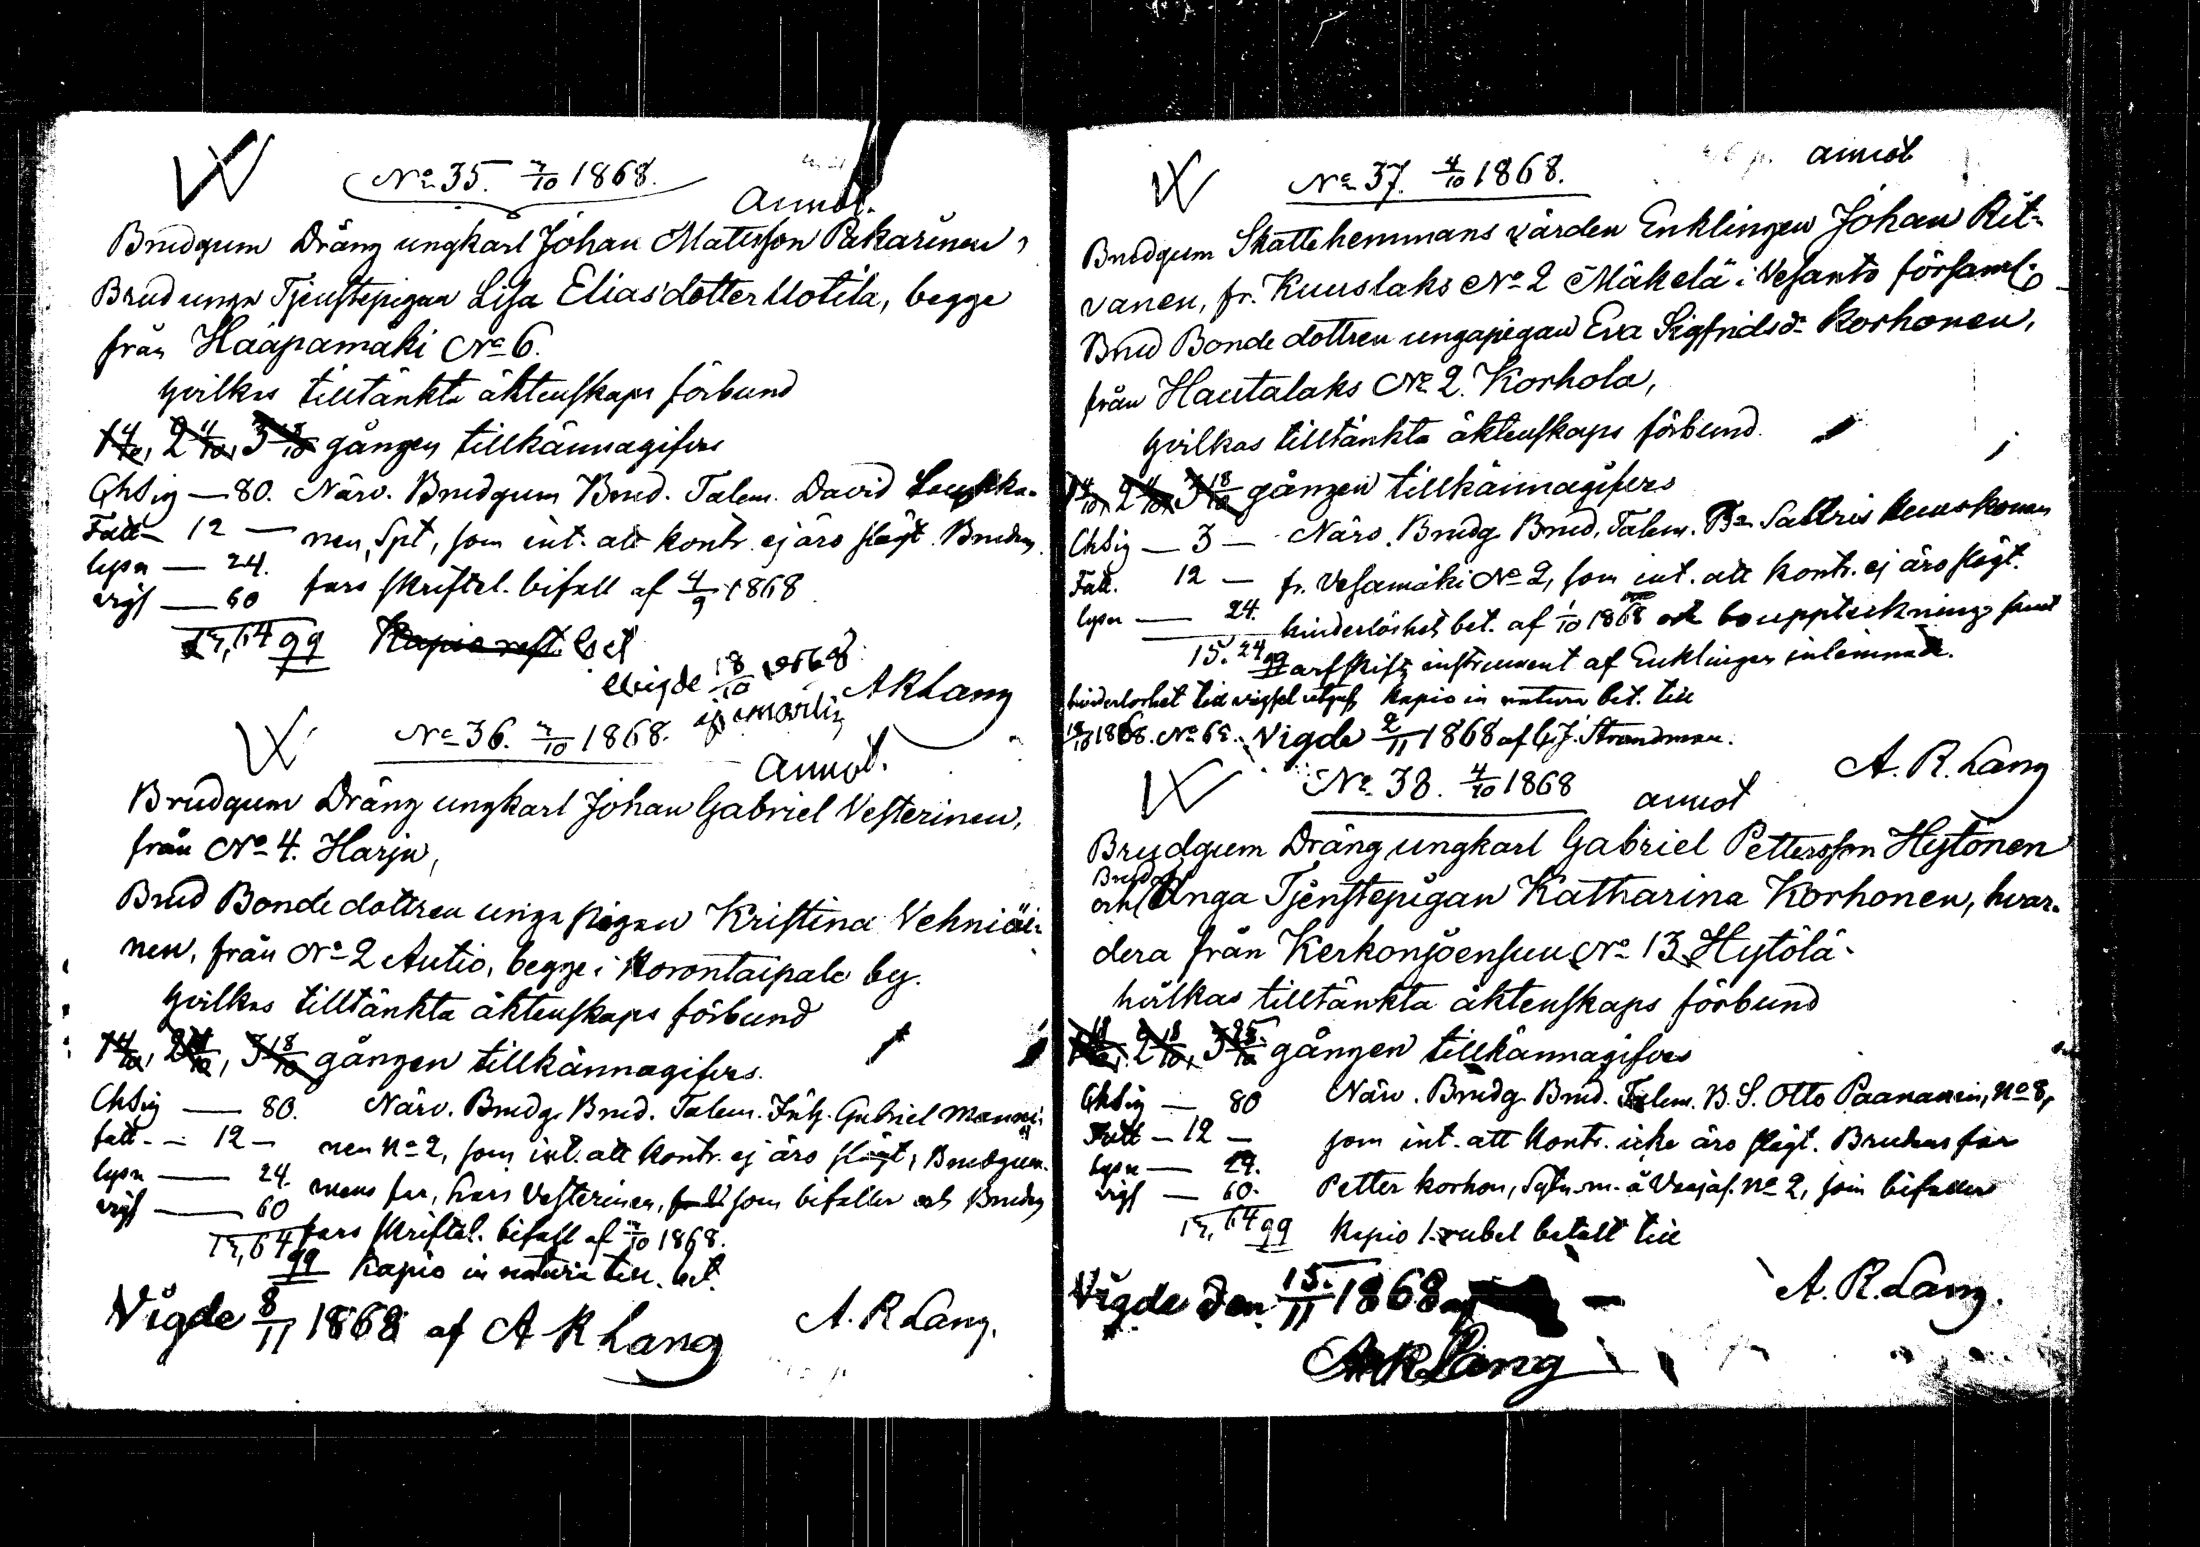 No 35. 3/10 1868.
Annot.
Brudgum Dräng ungkarl Johan Matsson Pakarinen,
Brud unga Tjenstepigan Lisa Eliasdotter Uotila, begge
från Haapamäki No 6.
hvilkas tilltänkta äktenskaps förbund
1 4/10, 2 11/10, 3 18/10 gången tillkännagifves
ChSig — 80. Närv. Brudgum Brud. Talem. David
Fatt — 12 — nen, Spt, som int. att kontr. ej äro slägt. Brudens
lysn — 24. fars skriftel. bifall af 4/9 1868
vigs — 60
64 99
Vigde 18/10 1868
A R Lang
No 36. 3/10 1868.
Annot.
Brudgum Dräng ungkarl Johan Gabriel Vesterinen,
från No 4. Harju,
Brud Bonde dottren unga pigan Kristina Vehniäi-
nen, från No 2 Autio, begge i Korontaipale by.
hvilkas tilltänkta äktenskaps förbund
1 4/10, 2 11/10, 3 18/10 gången tillkännagifves.
ChSig — 80. Närv. Brudg. Brud. Talem. Gabriel Manni-
fatt — 12 — nen No 2, som int. att kontr. ej äro slägt, Brudgum-
lysn — 24. mens far, Lars Vesterinen, som bifaller och Brudens
vigs — 60 fars skriftel. bifall af 3/10 1868.
64 99 Kapio in natura till. bet.
Vigde 8/11 1868 af A R Lang
A. R Lang.
No 37. 4/10 1868.
annot
Brudgum Skattehemmans värden Enklingen Johan Rit-
vanen, fr. Kuuslaks No 2 Mäkelä i Vesanto församl.
Brud Bonde dottren ungapigan Eva Sigfridsdr Korhonen,
från Hautalaks No 2. Korhola,
hvilkas tilltänkta äktenskaps förbund
1 4/10, 2 11/10, 3 18/10 gången tillkännagifves
ChSig — 3 — Närv. Brudg. Brud. Talem. Bn
Fatt. 12 — fr. Vesamäki No 2, som int. att kontr. ej äro slägt.
lysn — 24. hinderlöshets bet. af 1/10 1868 och bouppteckning samt
15. 24 99 arfskifts instrument af Enklingen inlemnade.
hinderloshet till vigsel utgafs Kapio in natura bet. till
1868. No Vigde 2/11 1868 af C. J. Strandman.
A. R. Lang
No 38. 4/10 1868
annot
Brudgum Dräng ungkarl Gabriel Pettersson Hytönen
Brud
och Unga Tjenstepigan Katharina Korhonen, hvar-
dera från Kerkonjoensuu No 13 Hytölä-
hvilkas tilltänkta äktenskaps förbund
2 18/10, 3 25/10 gången tillkännagifves
ChSig — 80 Närv. Brudg. Brud. Talem. B. S. Otto Paananen, No 8,
Fatt — 12 — som int. att kontr. icke äro slägt. Brudens far
lysn — 24. Petter Korhon, No 2, som bifaller
vigs — 60.
64 99 Kapio 1. rubel betalt till
A. R. Lang.
Vigde den 15/11 1868 af
A R Lang